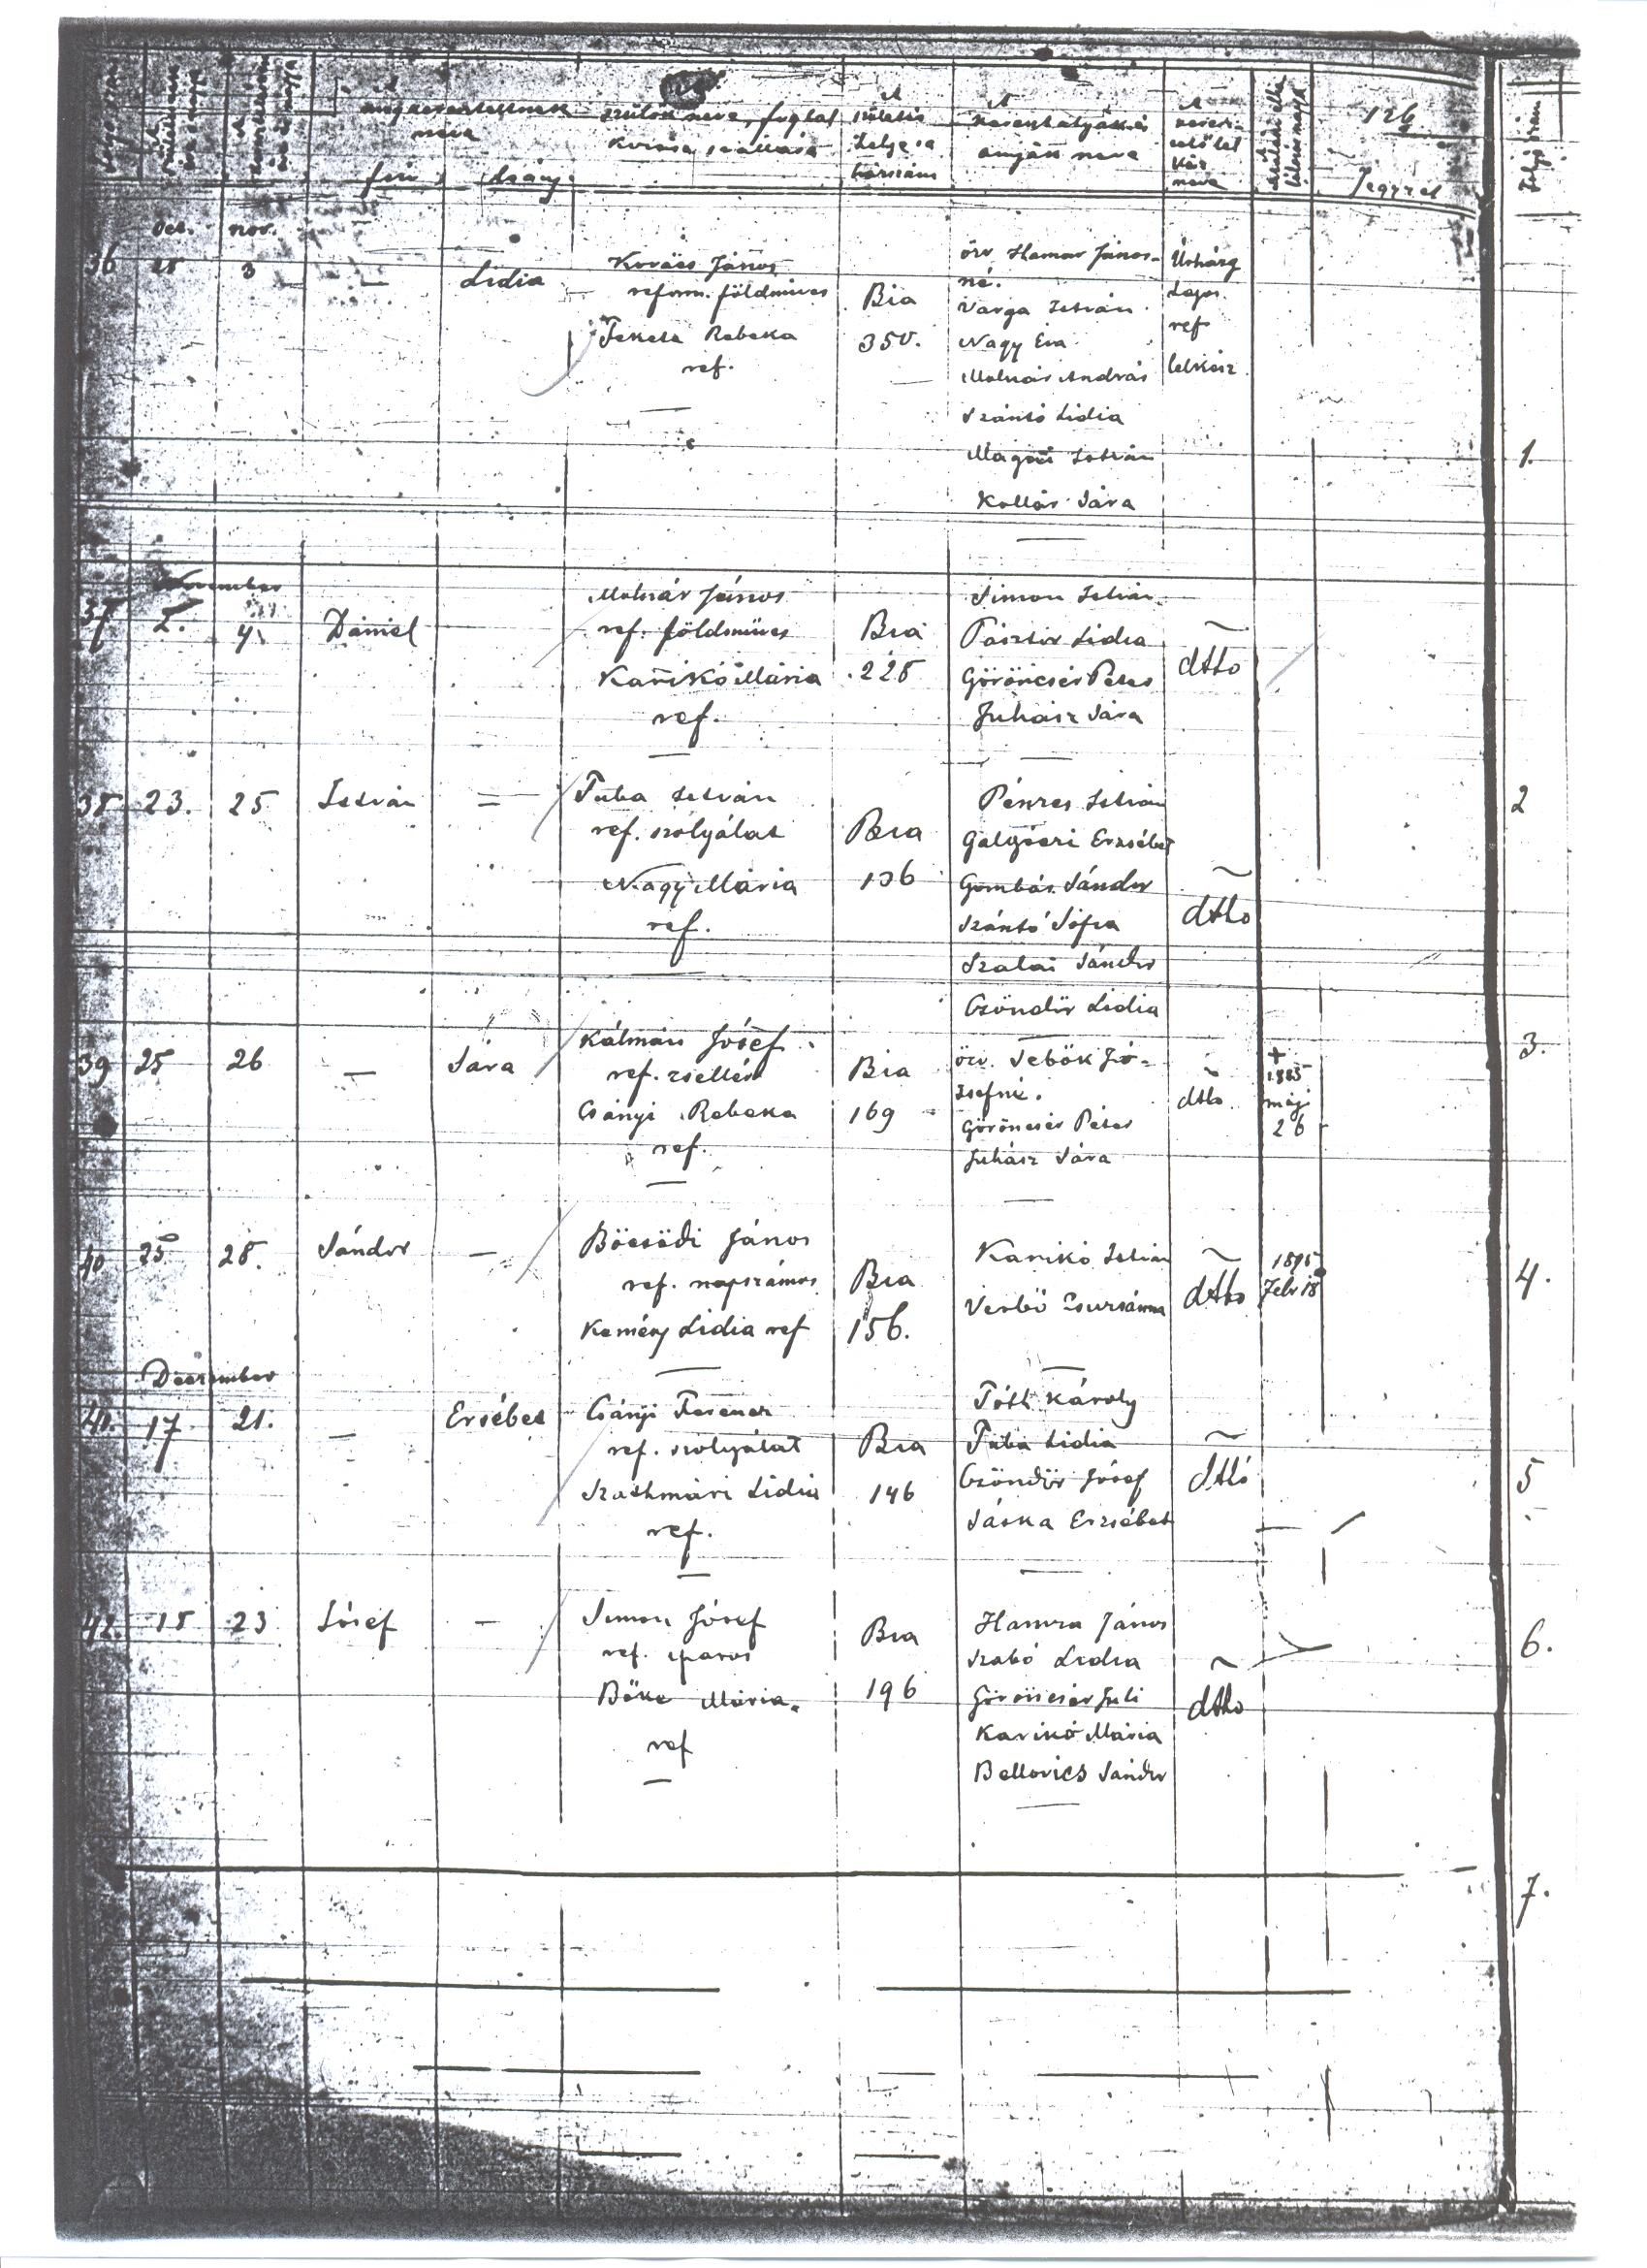 A
megkereszteltnek
neve
fiu
leány
szülők neve, foglal
kozása, vallása
A
születés
helye s a
házszám
A
keresztatyák és
anyák neve
A
keresz-
telő lel
kész
neve
126
Jegyzet
oct. nov.
36
28 3 — Lidia
Kovács János
reform. földmüves
Fekete Rebeka
ref.
Bia
350.
özv. Hamar János-
né.
Varga István
Nagy Éva
Molnár András
Szántó Lidia
István
Kollár Sára
Lajos
ref
lelkész
1.
November
37 2. 4. Dániel
Molnár János
ref. földmüves
Karikó Mária
ref.
Bia
228
Simon István
Pásztor Lidia
Göröncsér Péter
Juhász Sára
dtto
38 23. 25 István =
Tuba István
ref. szolgálat
Nagy Mária
ref.
Bia
136
Pénzes István
Galgóczi Erzsébet
Gombás Sándor
Szántó Sófia
Szalai Sándor
Czöndör Lidia
dtto
2
39 25 26 — Sára
Kálmán József
ref. zsellér
Csányi Rebeka
ref.
Bia
169
özv. Sebők Jó-
zsefné.
Göröncsér Péter
Juhász Sára
dtto
+
1885
máj
26
3.
40 25 28. Sándor —
Böcsödi János
ref. napszámos
Kemény Lidia ref
Bia
156.
Karikó István
Verbó Zsuzsánna
dtto
1895
Febr 18
4.
December
41. 17 21. — Ersébet
Csányi Ferencz
ref. szolgálat
Szathmári Lidia
ref.
Bia
146
Tóth Károly
Tuba Lidia
Czöndör Jósef
Sáska Erzsébet
dtto
5
42. 18 23 Jósef —
Simon Jósef
ref. iparos
Böke Mária.
ref
Bia
196
Hamza János
Szabó Lidia
Göröncsér Juli
Karikó Mária
Bellovics Sándor
dtto
6.
7.